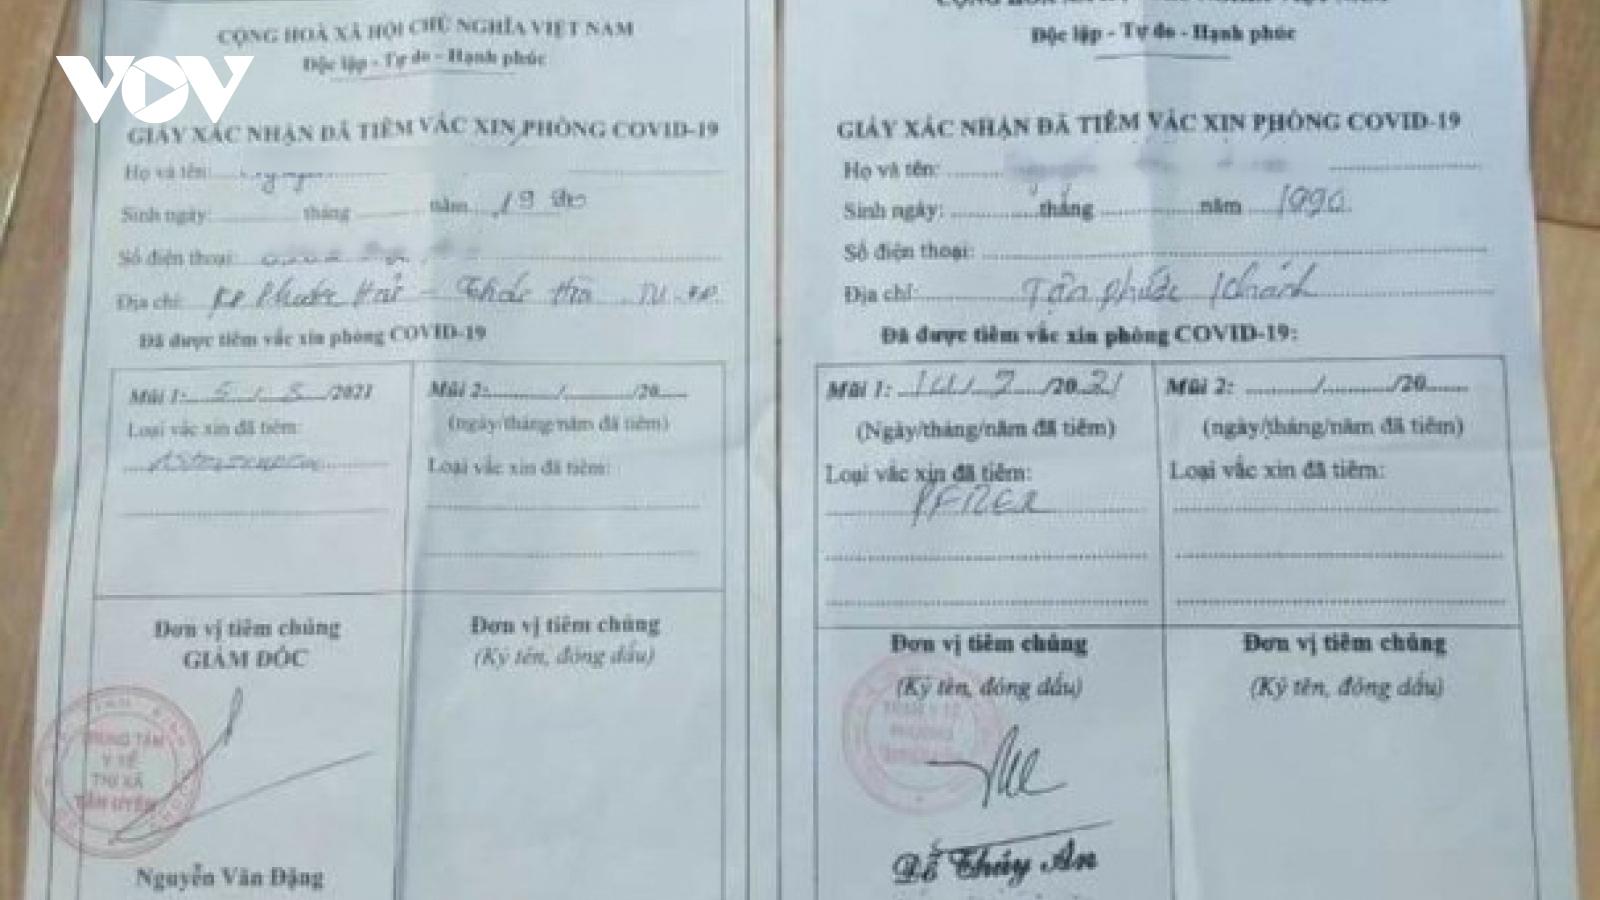 VOV
CỘNG HOÀ XÃ HỘI CHỦ NGHĨA VIỆT NAM
Độc lập - Tự do - Hạnh phúc
GIẤY XÁC NHẬN ĐÃ TIÊM VẮC XIN PHÒNG COVID-19
Họ và tên:
Sinh ngày: tháng năm 19
Số điện thoại:
Địa chỉ: KP Phước Hải - Thái Hoà TU
Đã được tiêm vắc xin phòng COVID-19
Mũi 1: 5/8/2021
Loại vắc xin đã tiêm:
Mũi 2: / /20
(ngày/tháng/năm đã tiêm)
Loại vắc xin đã tiêm:
Đơn vị tiêm chủng
GIÁM ĐỐC
TRUNG TÂM
Y TẾ
THỊ XÃ
TÂN UYÊN
Nguyễn Văn Đặng
Đơn vị tiêm chủng
(Ký tên, đóng dấu)
Độc lập - Tự do - Hạnh phúc
GIẤY XÁC NHẬN ĐÃ TIÊM VẮC XIN PHÒNG COVID-19
Họ và tên:
Sinh ngày: tháng năm 1990
Số điện thoại:
Địa chỉ: Tân Phước Khánh
Đã được tiêm vắc xin phòng COVID-19:
Mũi 1: /7/2021
(Ngày/tháng/năm đã tiêm)
Loại vắc xin đã tiêm:
PFIZER
Mũi 2: / /20
(ngày/tháng/năm đã tiêm)
Loại vắc xin đã tiêm:
Đơn vị tiêm chủng
(Ký tên, đóng dấu)
TRẠM Y TẾ
PHƯỜNG
Đỗ Thúy An
Đơn vị tiêm chủng
(Ký tên, đóng dấu)